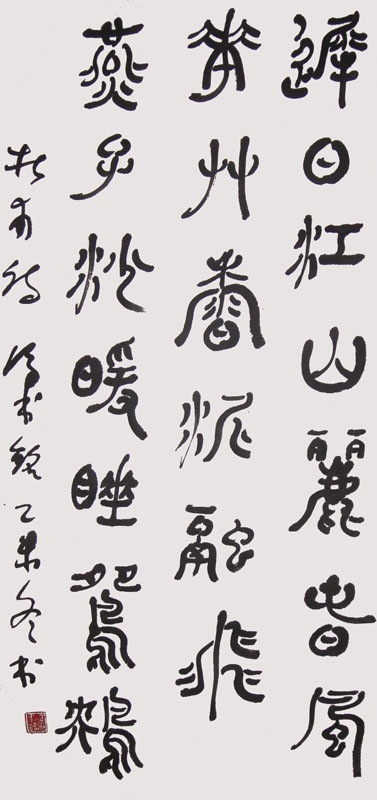 遲日江山麗春風
花草香泥融飛
燕子沙暖睡鴛鴦
杜甫詩 乙未冬書